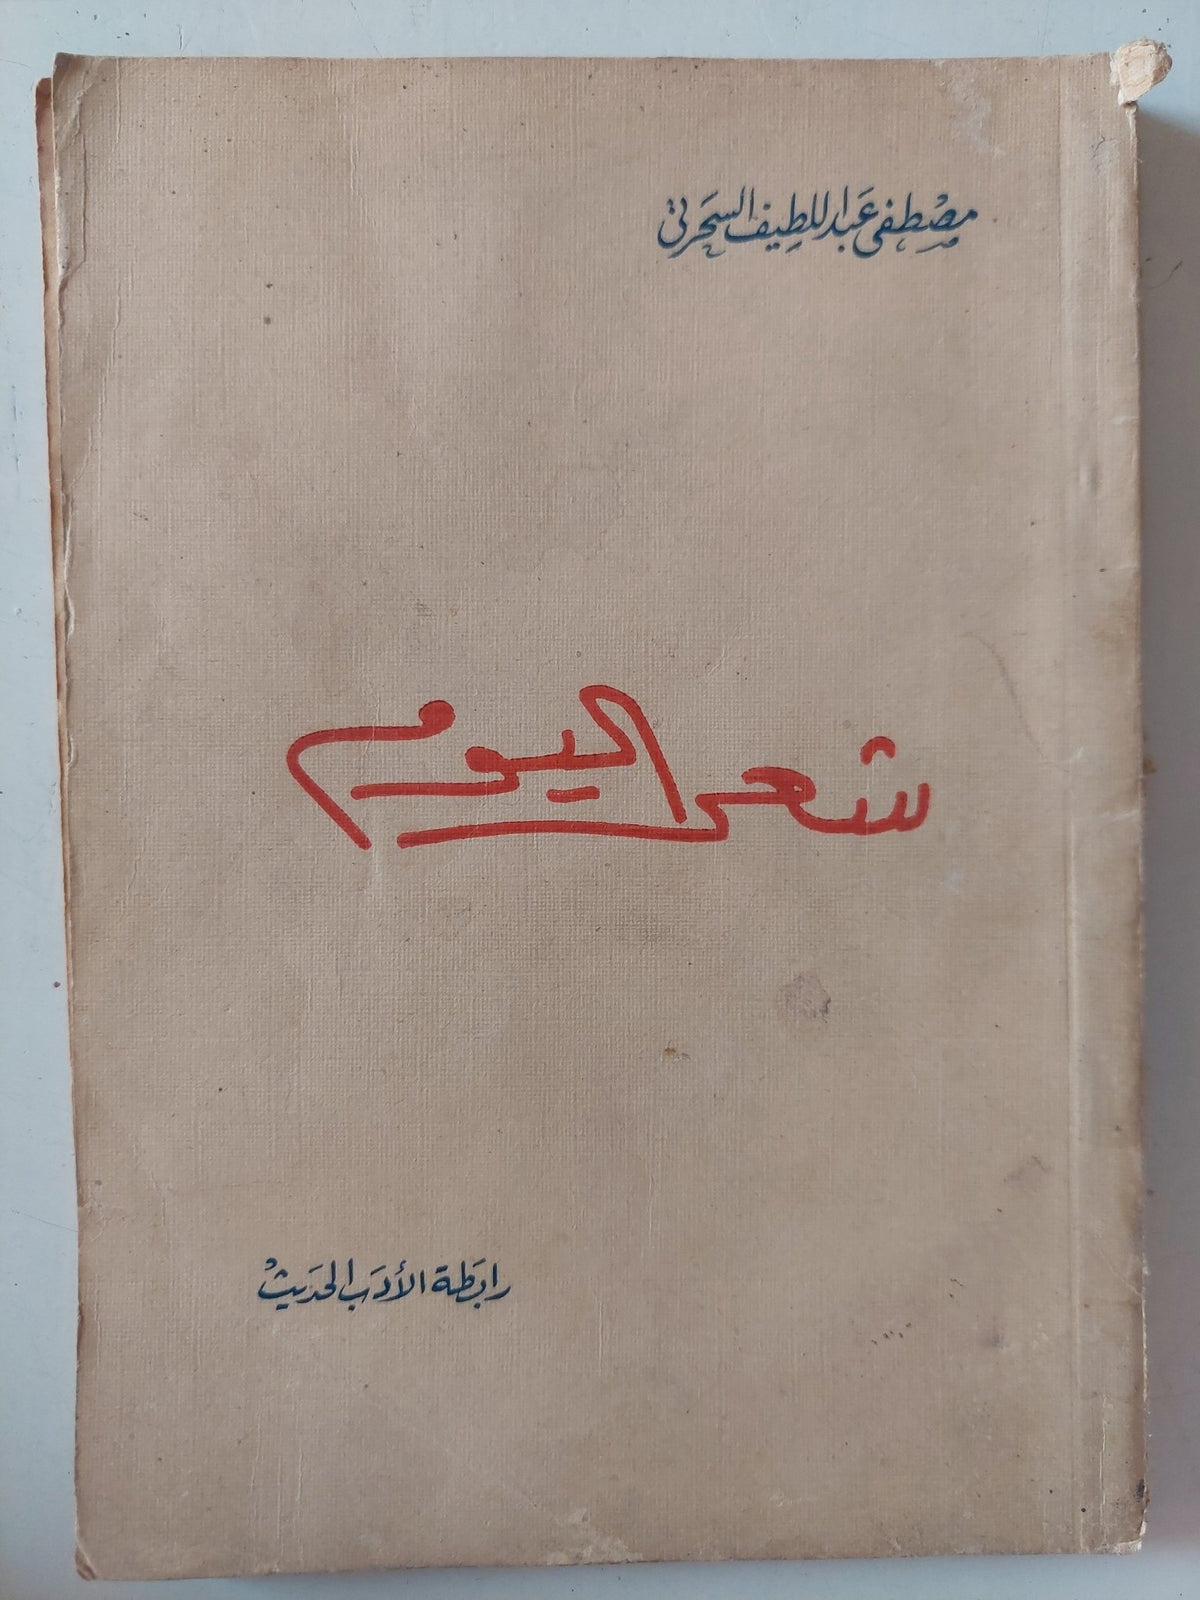 مصطفى عبد اللطيف السحرتى
شعر اليوم
رابطة الأدب الحديث